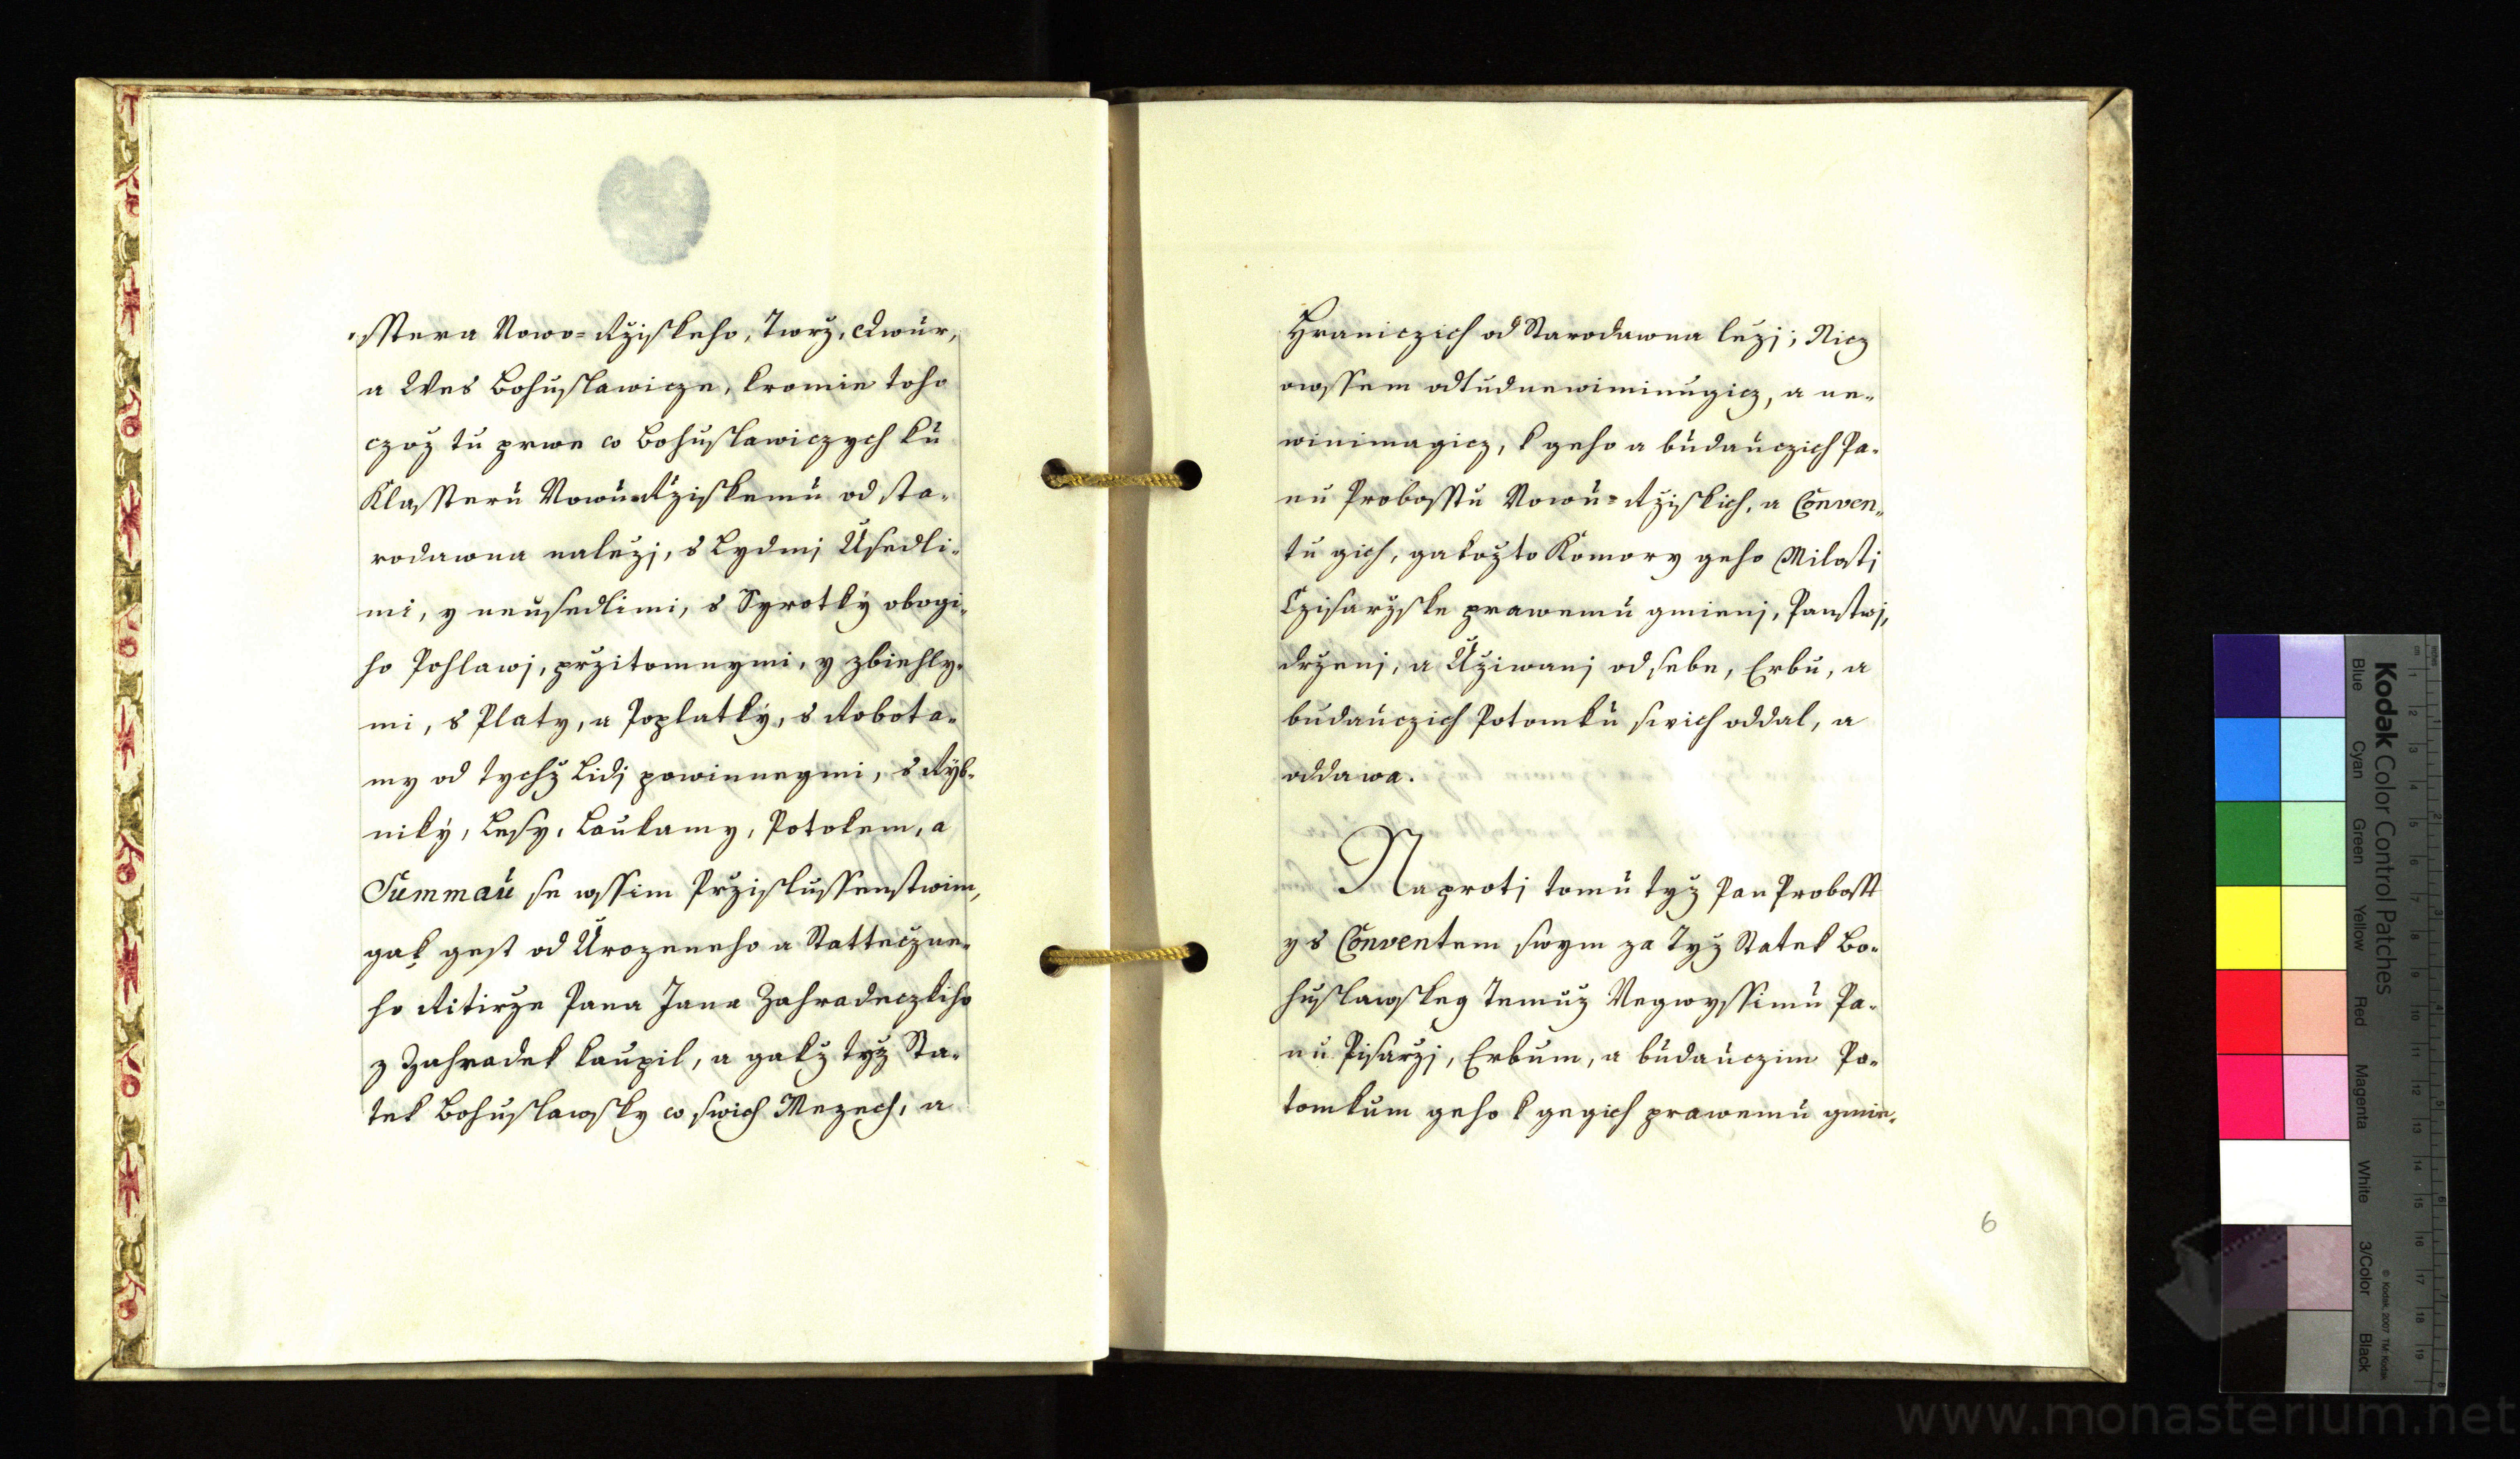 ssstera Nowo=Ržiskeho, Twrz, Dwůr,
a Wes Bohuslawicze, kromie toho
czož tu prwe w Bohuslawiczych ku
Klassteru Nowů=Ržiskemu od sta-
rodawna naležj, s Lydmj Usedli-
mi, y neusedlimi, s Syrotky obogi-
ho Pohlawj, pržitomnymi, y zbiehly-
mi, s Platy, a Poplatky, s Robota-
my od tychž Lidj powinnegmi, s Ryb-
niky, Lesy, Laukamy, Potokem, a
Summaů se wssim Pržislussenstwim,
gak gest od Urozeneho a Stattečzne-
ho Ritirže Pana Jana Zahradeczkiho
z Zahradek kaupil, a gakž tyž Sta-
tek Bohuslawsky w swich Mezech, a
Hraniczich od Starodawna ležj; Nicz
owssem odtud newiminugicz, a ne-
winimagicz, k geho a budauczich Pa-
nu Probosstu Nowů=Ržiskich, a Conven-
tu gich, gakožto Komory geho Milosti
Czisaržske prawemu gmienj, Panstwj,
drženj, a Užiwanj od sebe, Erbu, a
budauczich Potomku swich oddal, a
oddawa.
Naprotj tomu tyž Pan Probosst
y s Conventem swym za Tyž Statek Bo-
huslawskeg Temuž Negwyssimu Pa-
nu Pisaržj, Erbum, a budauczim Po-
tomkum geho k gegich prawemu gmie-
6
Kodak Color Control Patches
Blue Cyan Green Yellow Red Magenta White 3/Color Black
© Kodak, 2007 TM: Kodak
www.monasterium.net